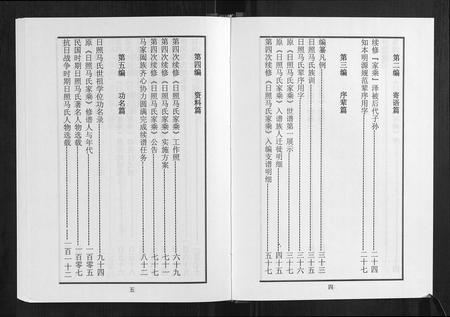 第二编 寄语篇
续修『家乘』泽被后代子孙 二十四
知本明源规范辈序用字 二十七
第三编 序辈篇
编纂凡例 三十三
日照马氏族训 三十五
日照马氏辈序用字 三十六
原《日照马氏家乘》世谱第一展示 三十七
《日照马氏家乘》入谱族人迁徙明细 四十五
第四次续修《日照马氏家乘》入编支谱明细 五十七
四
第四编 资料篇
第四次续修《日照马氏家乘》工作照 六十九
第四次续修《日照马氏家乘》实施方案 七十一
第四次续修《日照马氏家乘》公告 七十七
马家阖族齐心协力圆满完成续谱任务 八十二
第五编 功名篇
日照马氏世祖学位功名录 九十四
原《日照马氏家乘》修谱人与年代 一百零五
民国时期日照马氏著名人物选载 一百零七
抗日战争时期日照马氏人物选载 一百一十二
五